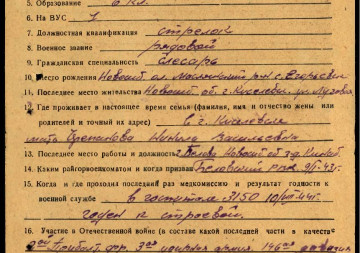 5. Образование 6 кл.
6. На ВУС 1
7. Должностная квалификация стрелок
8. Военное звание рядовой
9. Гражданская специальность слесарь
10. Место рождения Новосиб. обл. р-н с. Егорьевск
11. Последнее место жительства Новосиб. об. г. Киселевск ул. Луговая
12. Где проживает в настоящее время семья (фамилия, имя и отчество жены или
родителей и точный их адрес) в г. Киселевске
мать Васильевна
13. Последнее место работы и должность г. Новосиб об
14. Каким райгорвоенкоматом и когда призван Беловский РВК 9/I-43 г.
15. Когда и где проходил последний раз медкомиссию и результат годности к
военной службе в госпитале 3150 10/VIII-44 г.
годен к строевой.
16. Участие в Отечественной войне (в составе какой последней части в качестве
Прибалт. фр. 3яя ударная армия 146яя дивизия